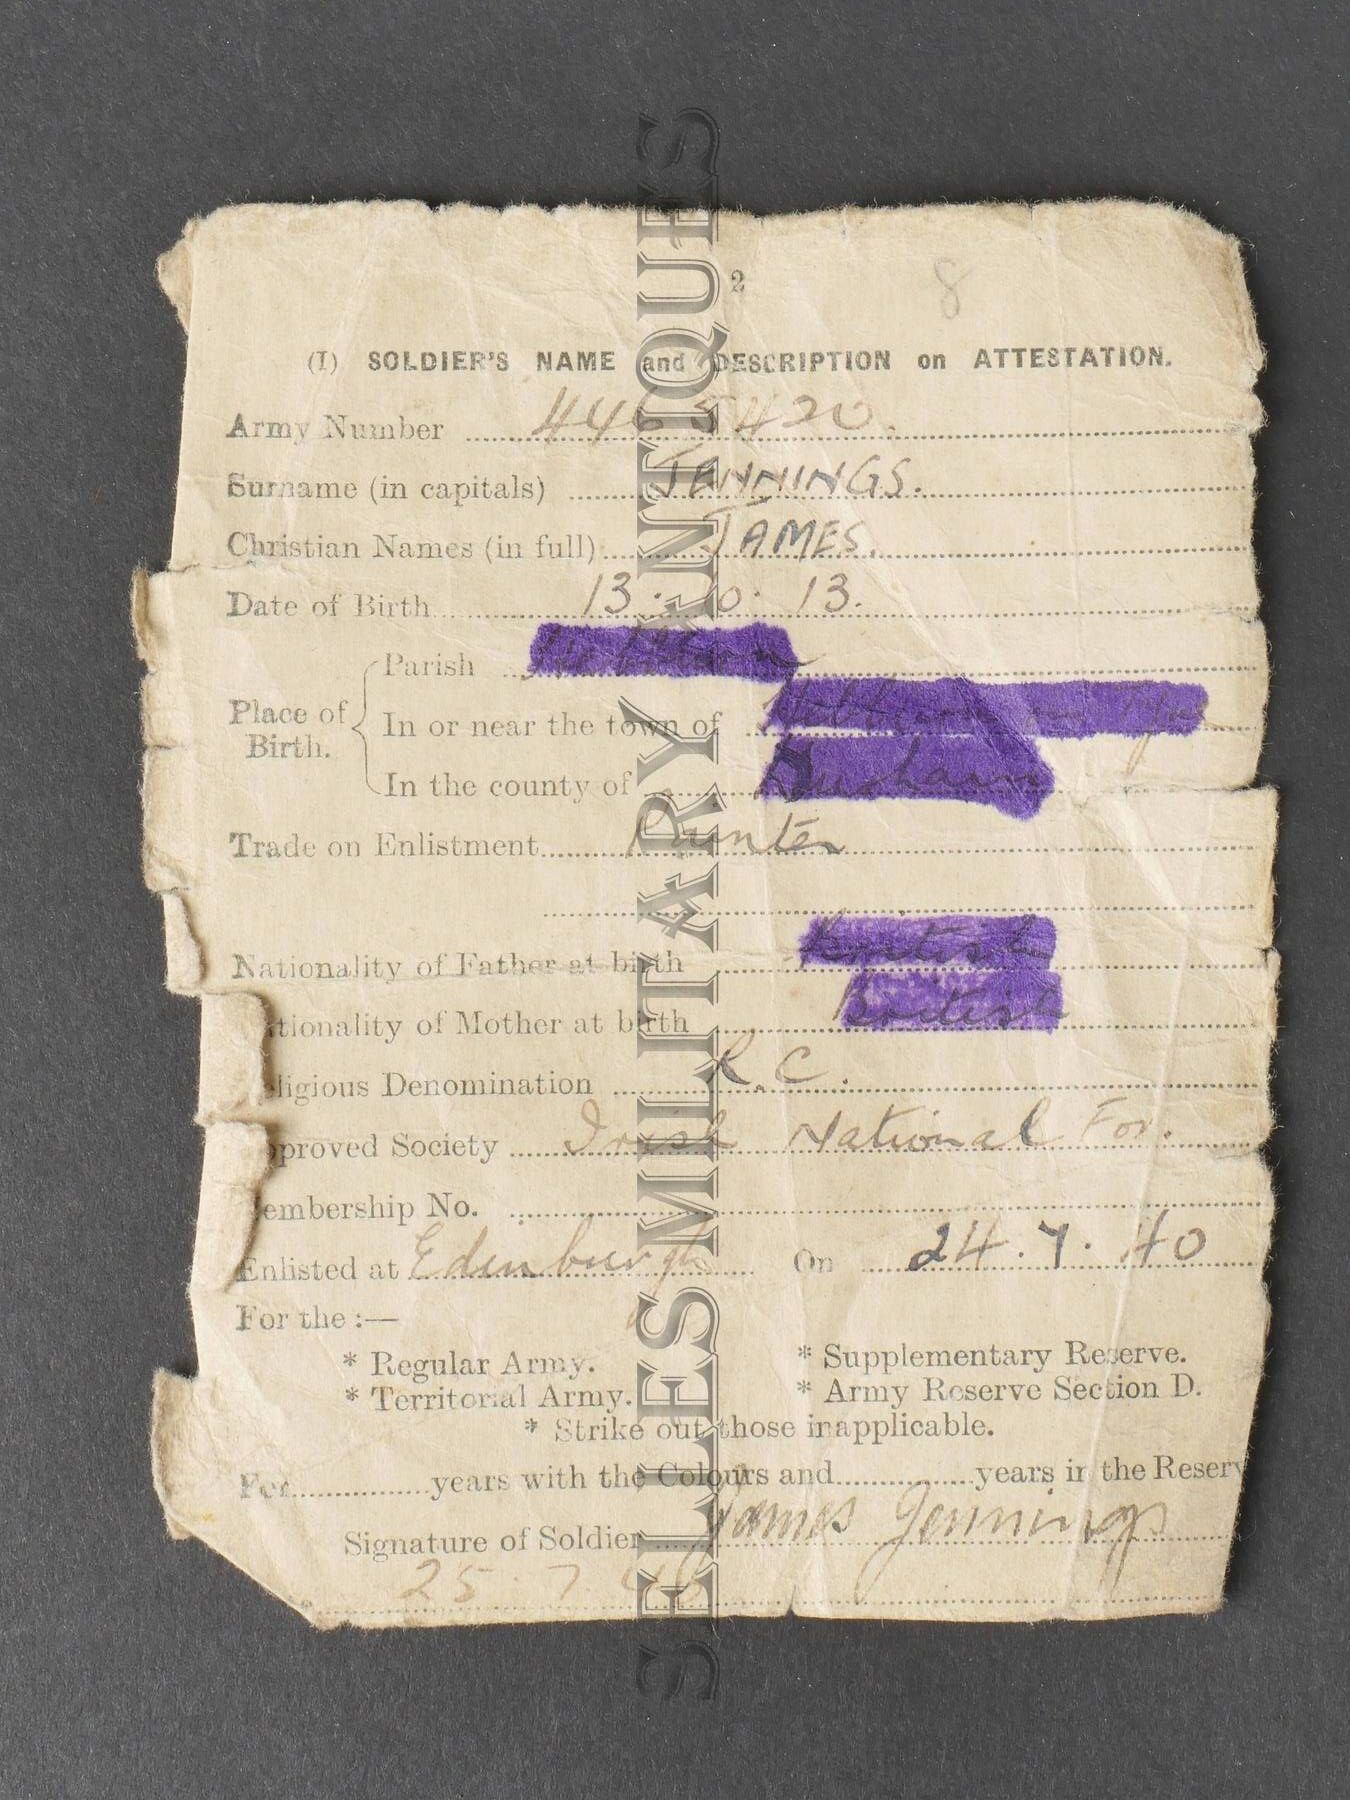 2 8
(I) SOLDIER'S NAME and DESCRIPTION on ATTESTATION.
Army Number 4465420.
Surname (in capitals) JENNINGS.
Christian Names (in full) JAMES.
Date of Birth 13. 10. 13.
Parish
Place of Birth.
In or near the town of
In the county of Durham
Trade on Enlistment Painter
Nationality of Father at birth British
Nationality of Mother at birth British
eligious Denomination R.C.
pproved Society Irish National For.
embership No.
Enlisted at Edinburgh On 24.7.40
For the :—
* Regular Army. * Supplementary Reserve.
* Territorial Army. * Army Reserve Section D.
* Strike out those inapplicable.
For years with the Colours and years in the Reserv
Signature of Soldier James Jennings
25.7.40
SELLES MILITARY ANTIQUES